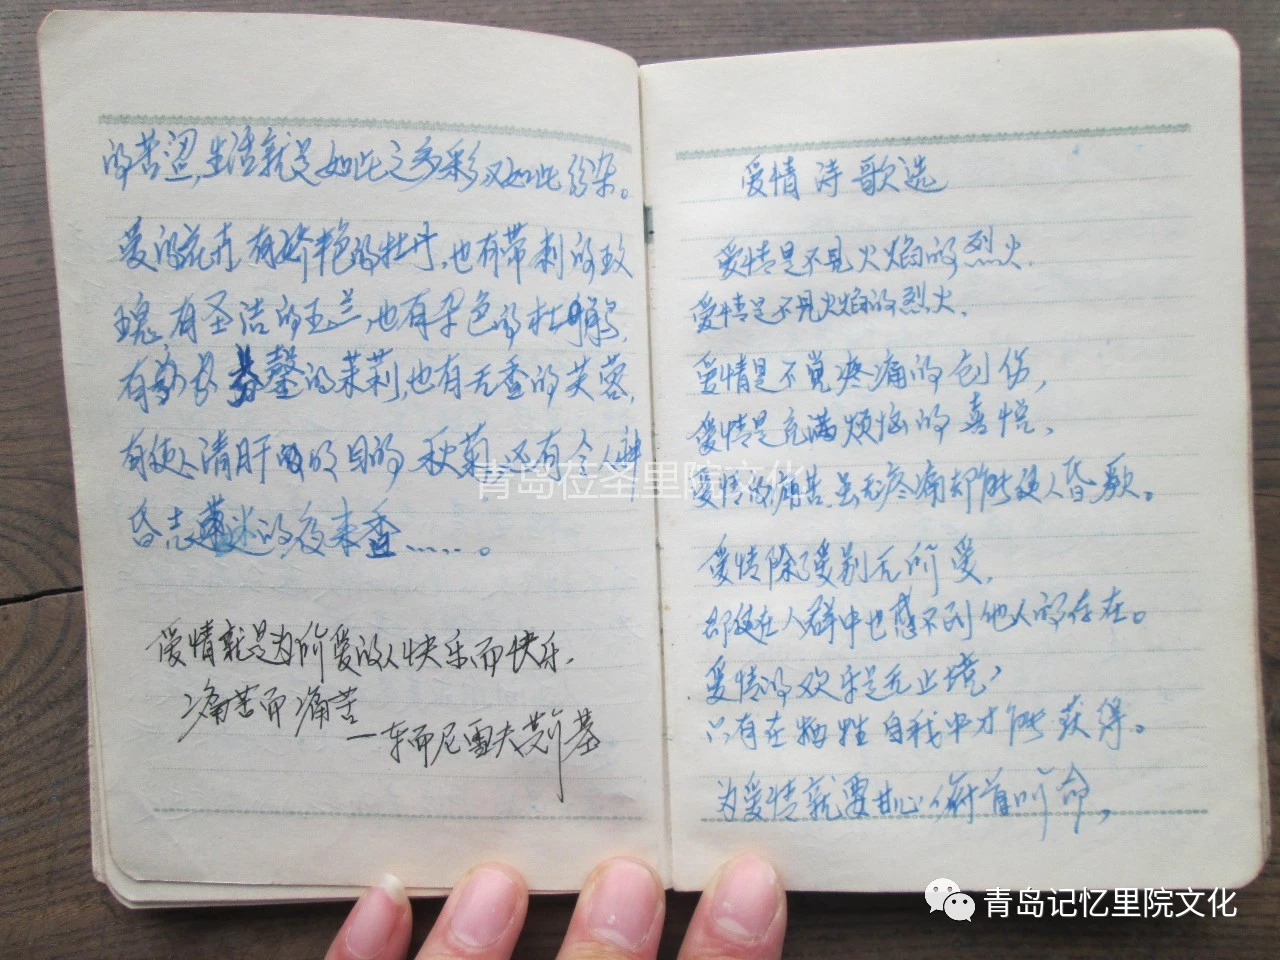 的苦涩,生活就是如此之多彩又如此纷杂。
爱的花卉有娇艳的牡丹,也有带刺的玫
瑰,有圣洁的玉兰,也有杂色的杜鹃,
有 芬馨的茉莉,也有无香的芙蓉,
有使人清肝 明目的秋菊,还有令人神
昏志迷的夜来香……。
爱情就是为所爱的人快乐而快乐,
痛苦而痛苦
—车而尼雪夫斯基
爱情诗歌选
爱情是不见火焰的烈火,
爱情是不见火焰的烈火,
爱情是不觉疼痛的创伤,
爱情是充满烦恼的喜悦,
爱情的痛苦,虽无疼痛却能使人昏厥。
爱情除了爱别无所爱,
即使在人群中也感不到他人的存在。
爱情的欢乐是无止境,
只有在牺牲自我中才能获得。
为爱情就要甘心俯首听命,
青岛 里院文化
青岛记忆里院文化